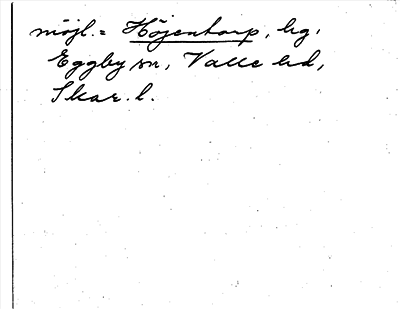 möjl. = Höjentorp, hg,
Eggby sn, Valle hd,
Skar. l.